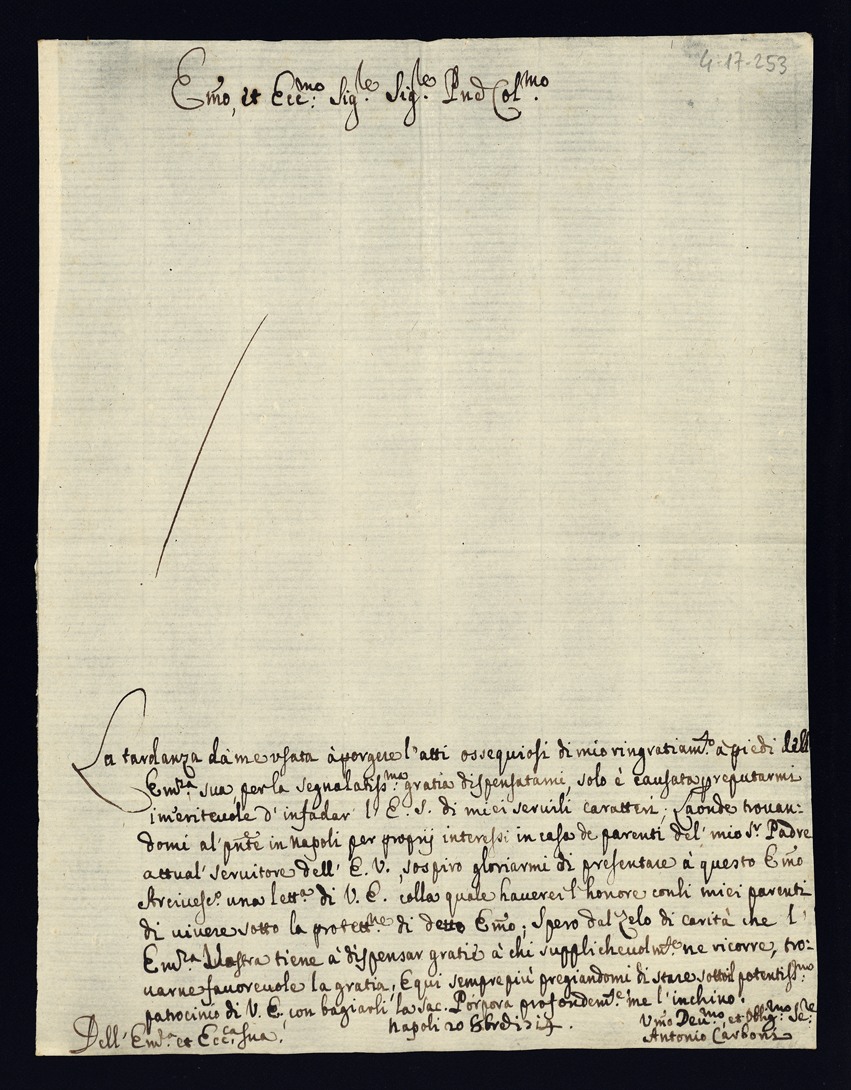 4-17-253
Em̃o, et Ecc:mo Sig.re Sig.re Pñe Col.mo
La tardanza dà me usata à porgere l'atti ossequiosi di mio ringratiam.to à piedi dell
Em.za sua, per la segnalatiss.ma gratia dispensatami, solo è causata reputarmi
im̃eriteuole d'infadar l'E. S. di miei seruili caratteri; Laonde trouan-
domi al' pñte in Napoli per proprij interessi in casa de parenti del' mio S.r Padre
attual' seruitore dell' E. V., sospiro gloriarmi di presentare à questo Em̃o
Arciuesc.o una lett.a di V. E. colla quale hauerei l'honore conli miei parenti
di uiuere sotto la protett.ne di detto Em̃o; Spero dal Zelo di carità che l'
Em.za Uostra tiene à dispensar gratie à chi suppliheuolm.te ne ricorre, tro-
uarne fauoreuole la gratia, E qui sempre più pregiandomi di stare sotto il potentiss.mo
patrocinio di V. E. con bagiarli la sac. Porpora profondem.te me l'inchino.
Dell' Em.za et Ecc.a sua.
Napoli 20 8bre
Vmo Deu.mo, et Oblig.mo Se.re
Antonio Carboni